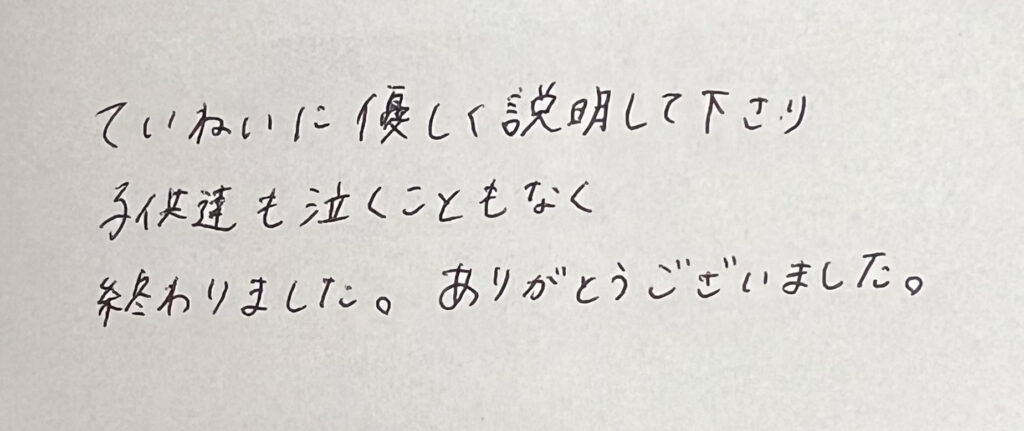 ていねいに優しく説明して下さり
子供達も泣くこともなく
終わりました。ありがとうございました。